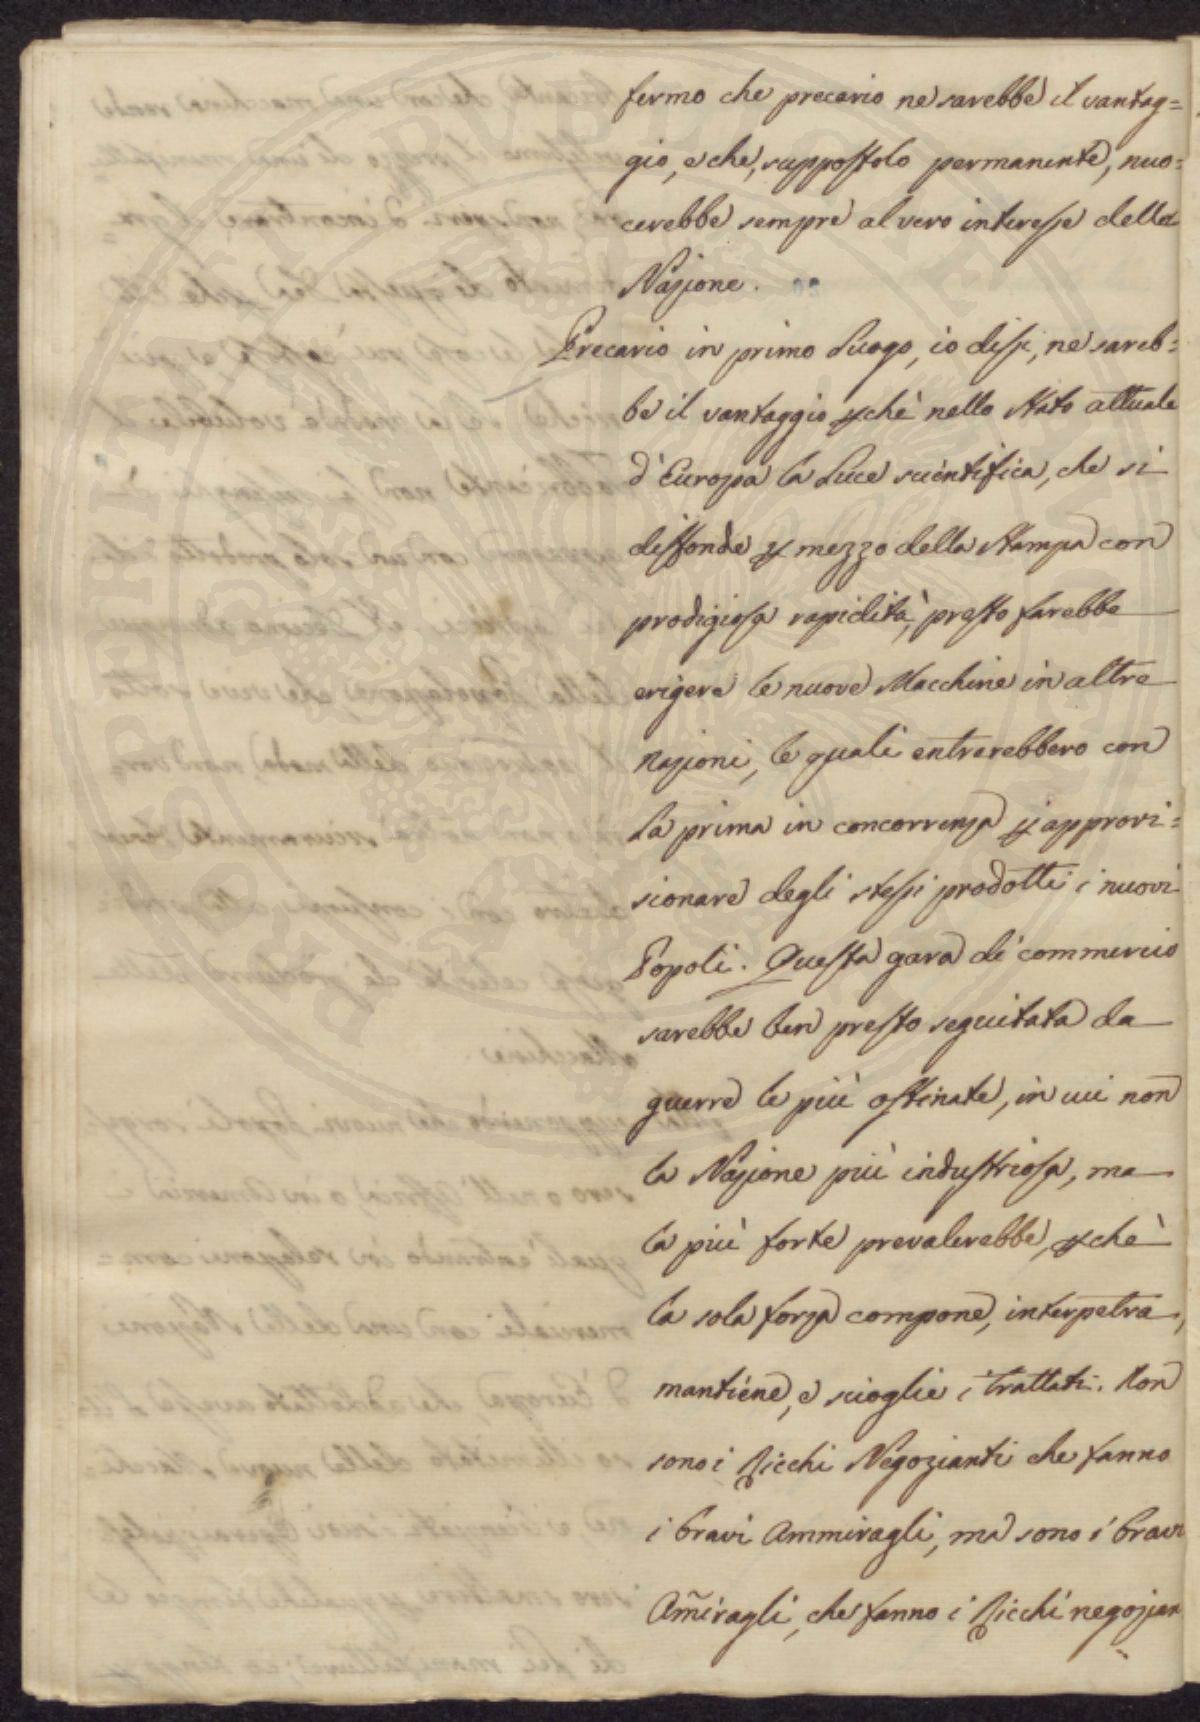 fermo che precario ne sarebbe il vantag=
gio, e che, suppostolo permanente, nuo=
cerebbe sempre al vero interesse della
Nazione.
Precario in primo luogo, io dissi, ne sareb=
be il vantaggio pchè nello stato attuale
d'Europa la Luce scientifica, che si
diffonde p mezzo della stampa con
prodigiosa rapidità, presto farebbe
erigere le nuove Macchine in altre
nazioni, le quali entrerebbero con
la prima in concorrenza p approvi=
sionare degli stessi prodotti i nuovi
Popoli. Questa gara di commercio
sarebbe ben presto seguitata da
guerre le più ostinate, in cui non
la Nazione più industriosa, ma
la più forte prevalerebbe, pchè
la sola forza compone, interpetra,
mantiene, e scioglie i trattati. Non
sono i Ricchi Negozianti che fanno
i bravi Ammiragli, ma sono i bravi
Am̃iragli, che fanno i Ricchi negozian